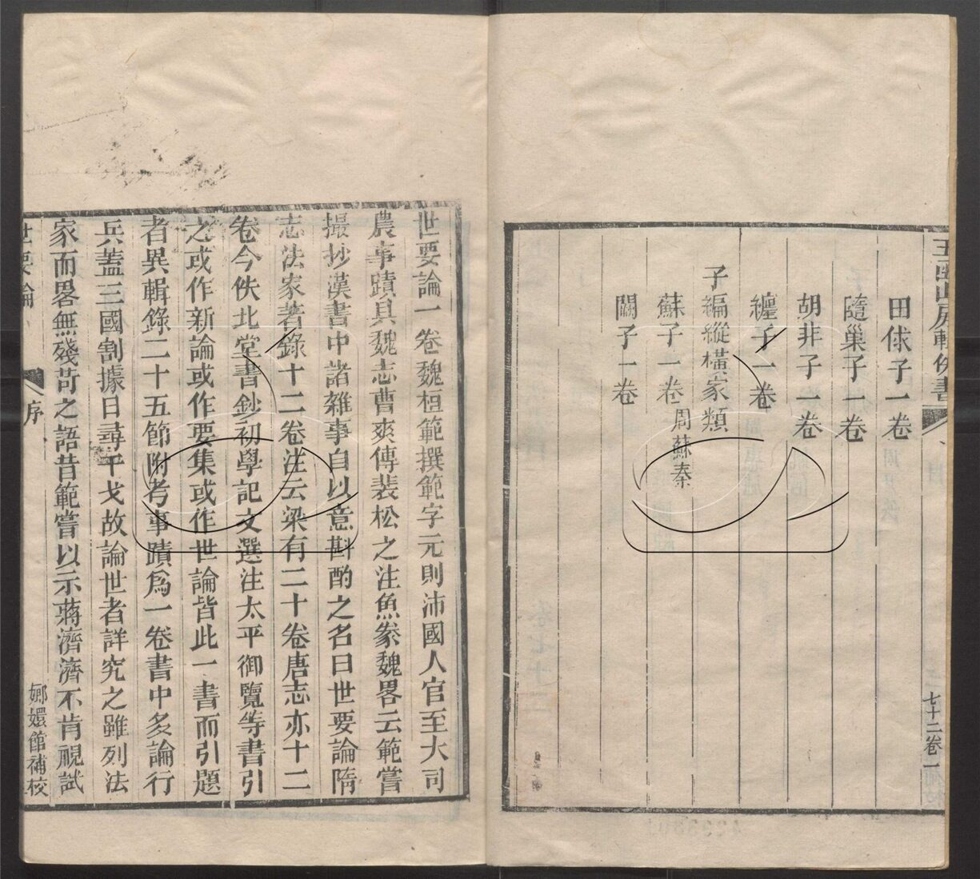 玉函山房輯佚書
七十二卷一
田俅子一卷
隨巢子一卷
胡非子一卷
纏子一卷
子編縱橫家類
蘇子一卷 周蘇秦
闕子一卷
世要論一卷魏桓範撰範字元則沛國人官至大司
農事蹟具魏志曹爽傳裴松之注魚豢魏畧云範嘗
撮抄漢書中諸雜事自以意斟酌之名曰世要論隋
志法家著錄十二卷注云梁有二十卷唐志亦十二
卷今佚北堂書鈔初學記文選注太平御覽等書引
之或作新論或作要集或作世論皆此一書而引題
者異輯錄二十五節附考事蹟爲一卷書中多論行
兵蓋三國割據日尋干戈故論世者詳究之雖列法
家而畧無殘苛之語昔範嘗以示蔣濟濟不肯視試
世要論 序
嫏嬛館補校